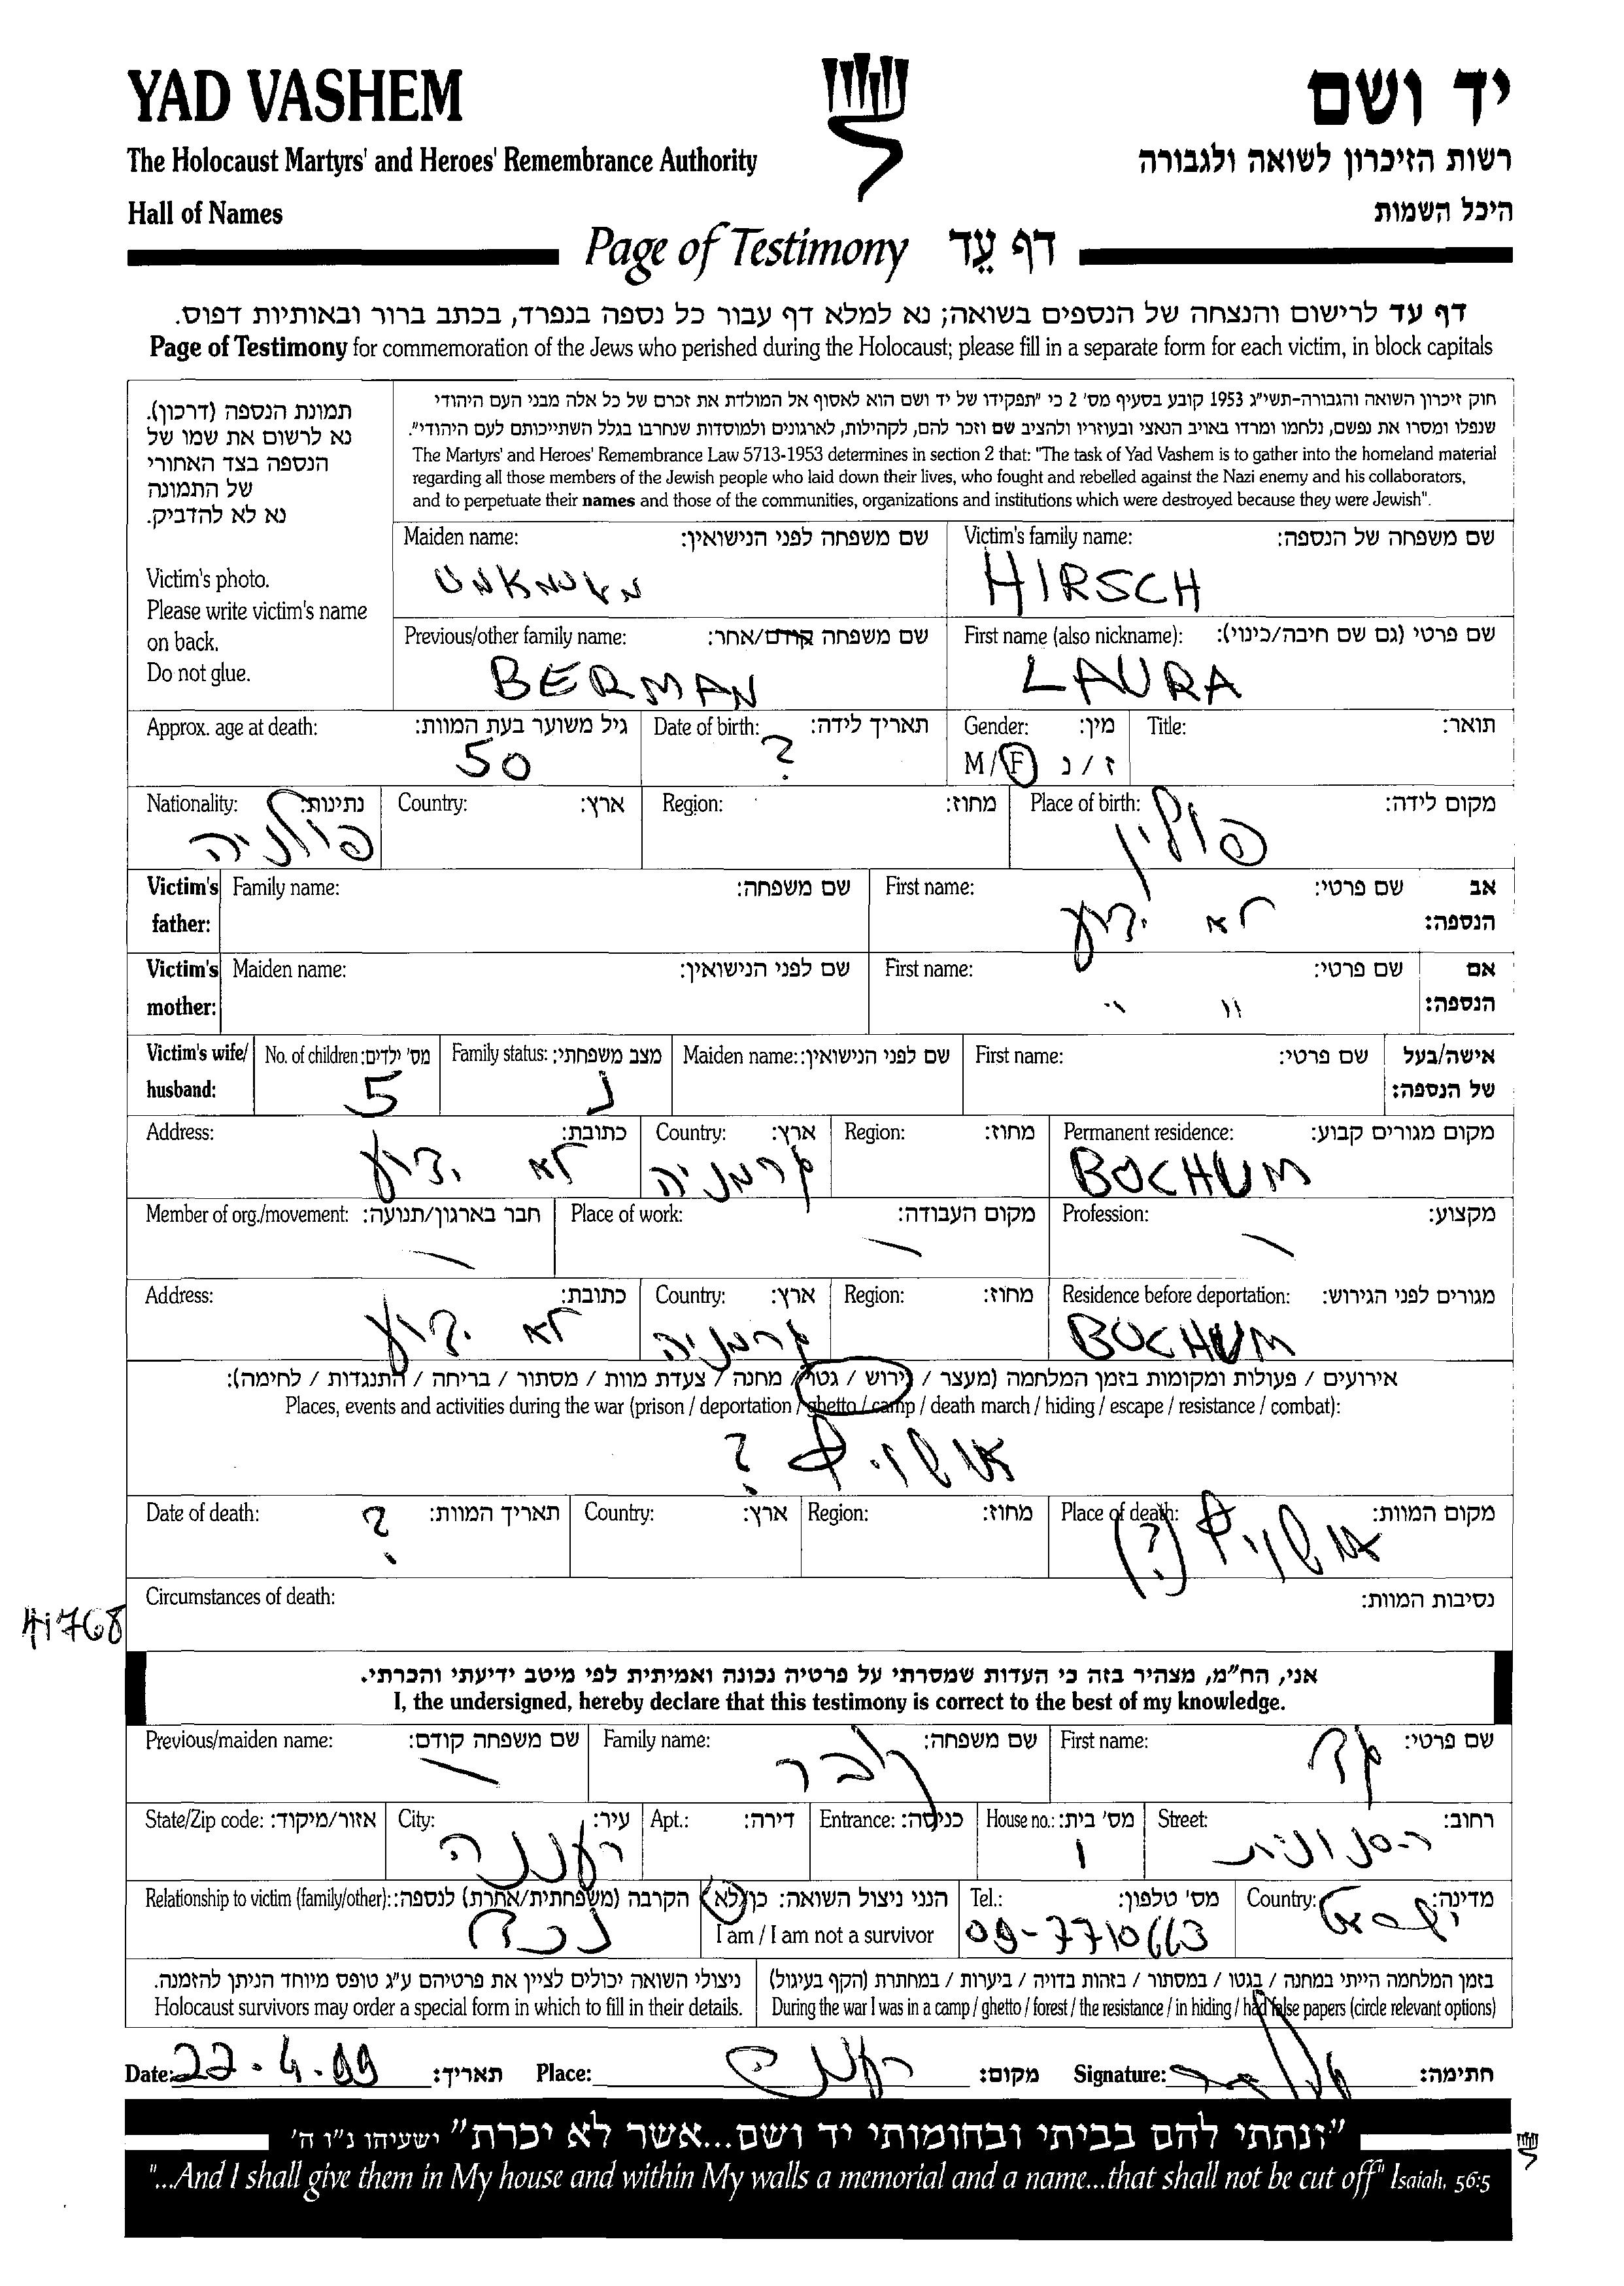 YAD VASHEM
יד ושם
The Holocaust Martyrs' and Heroes' Remembrance Authority
רשות הזיכרון לשואה ולגבורה
Hall of Names
היכל השמות
Page of Testimony דף עֵד
דף עד לרישום והנצחה של הנספים בשואה; נא למלא דף עבור כל נספה בנפרד, בכתב ברור ובאותיות דפוס.
Page of Testimony for commemoration of the Jews who perished during the Holocaust; please fill in a separate form for each victim, in block capitals
תמונת הנספה (דרכון).
נא לרשום את שמו של
הנספה בצד האחורי
של התמונה
נא לא להדביק.
Victim's photo.
Please write victim's name
on back.
Do not glue.
חוק זיכרון השואה והגבורה-תשי"ג 1953 קובע בסעיף מס' 2 כי "תפקידו של יד ושם הוא לאסוף אל המולדת את זכרם של כל אלה מבני העם היהודי
שנפלו ומסרו את נפשם, נלחמו ומרדו באויב הנאצי ובעוזריו ולהציב שם וזכר להם, לקהילות, לארגונים ולמוסדות שנחרבו בגלל השתייכותם לעם היהודי".
The Martyrs' and Heroes' Remembrance Law 5713-1953 determines in section 2 that: "The task of Yad Vashem is to gather into the homeland material
regarding all those members of the Jewish people who laid down their lives, who fought and rebelled against the Nazi enemy and his collaborators,
and to perpetuate their names and those of the communities, organizations and institutions which were destroyed because they were Jewish".
Victim's family name: שם משפחה של הנספה:
HIRSCH
Maiden name: שם משפחה לפני הנישואין:
UNKNOWN
First name (also nickname): שם פרטי (גם שם חיבה/כינוי):
LAURA
Previous/other family name: שם משפחה קודם/אחר:
BERMAN
Title: תואר:
Gender: מין:
M/F ז/נ
Date of birth: תאריך לידה:
?
Approx. age at death: גיל משוער בעת המוות:
50
Place of birth: מקום לידה:
פולין
Region: מחוז:
Country: ארץ:
Nationality: נתינות:
פולניה
Victim's father: אב הנספה:
First name: שם פרטי:
לא ידוע
Family name: שם משפחה:
Victim's mother: אם הנספה:
First name: שם פרטי:
" "
Maiden name: שם לפני הנישואין:
Victim's wife/ husband: אישה/בעל של הנספה:
First name: שם פרטי:
Maiden name: שם לפני הנישואין:
Family status: מצב משפחתי:
נ
No. of children: מס' ילדים:
5
Permanent residence: מקום מגורים קבוע:
BOCHUM
Region: מחוז:
Country: ארץ:
גרמניה
Address: כתובת:
לא ידוע
Profession: מקצוע:
Place of work: מקום העבודה:
Member of org./movement: חבר בארגון/תנועה:
Residence before deportation: מגורים לפני הגירוש:
BOCHUM
Region: מחוז:
Country: ארץ:
גרמניה
Address: כתובת:
לא ידוע
אירועים / פעולות ומקומות בזמן המלחמה (מעצר / גירוש / גטו / מחנה / צעדת מוות / מסתור / בריחה / התנגדות / לחימה):
Places, events and activities during the war (prison / deportation / ghetto / camp / death march / hiding / escape / resistance / combat):
אושויץ ?
Place of death: מקום המוות:
אושויץ (?)
Region: מחוז:
Country: ארץ:
Date of death: תאריך המוות:
?
Circumstances of death: נסיבות המוות:
אני, הח"מ, מצהיר בזה כי העדות שמסרתי על פרטיה נכונה ואמיתית לפי מיטב ידיעתי והכרתי.
I, the undersigned, hereby declare that this testimony is correct to the best of my knowledge.
First name: שם פרטי:
גד
Family name: שם משפחה:
Previous/maiden name: שם משפחה קודם:
Street: רחוב:
הסנונית
House no.: מס' בית:
1
Entrance: כניסה:
Apt.: דירה:
City: עיר:
רעננה
State/Zip code: אזור/מיקוד:
Country: מדינה:
ישראל
Tel.: מס' טלפון:
09-7710663
הנני ניצול השואה: כן/לא
I am / I am not a survivor
Relationship to victim (family/other): הקרבה (משפחתית/אחרת) לנספה:
נכדה
בזמן המלחמה הייתי במחנה / בגטו / במסתור / בזהות בדויה / ביערות / במחתרת (הקף בעיגול)
During the war I was in a camp / ghetto / forest / the resistance / in hiding / had false papers (circle relevant options)
ניצולי השואה יכולים לציין את פרטיהם ע"ג טופס מיוחד הניתן להזמנה.
Holocaust survivors may order a special form in which to fill in their details.
Date: 22.4.99 תאריך: Place: רעננה מקום: Signature: חתימה:
"ונתתי להם בביתי ובחומותי יד ושם...אשר לא יכרת" ישעיהו נ"ו ה'
"...And I shall give them in My house and within My walls a memorial and a name...that shall not be cut off" Isaiah, 56:5